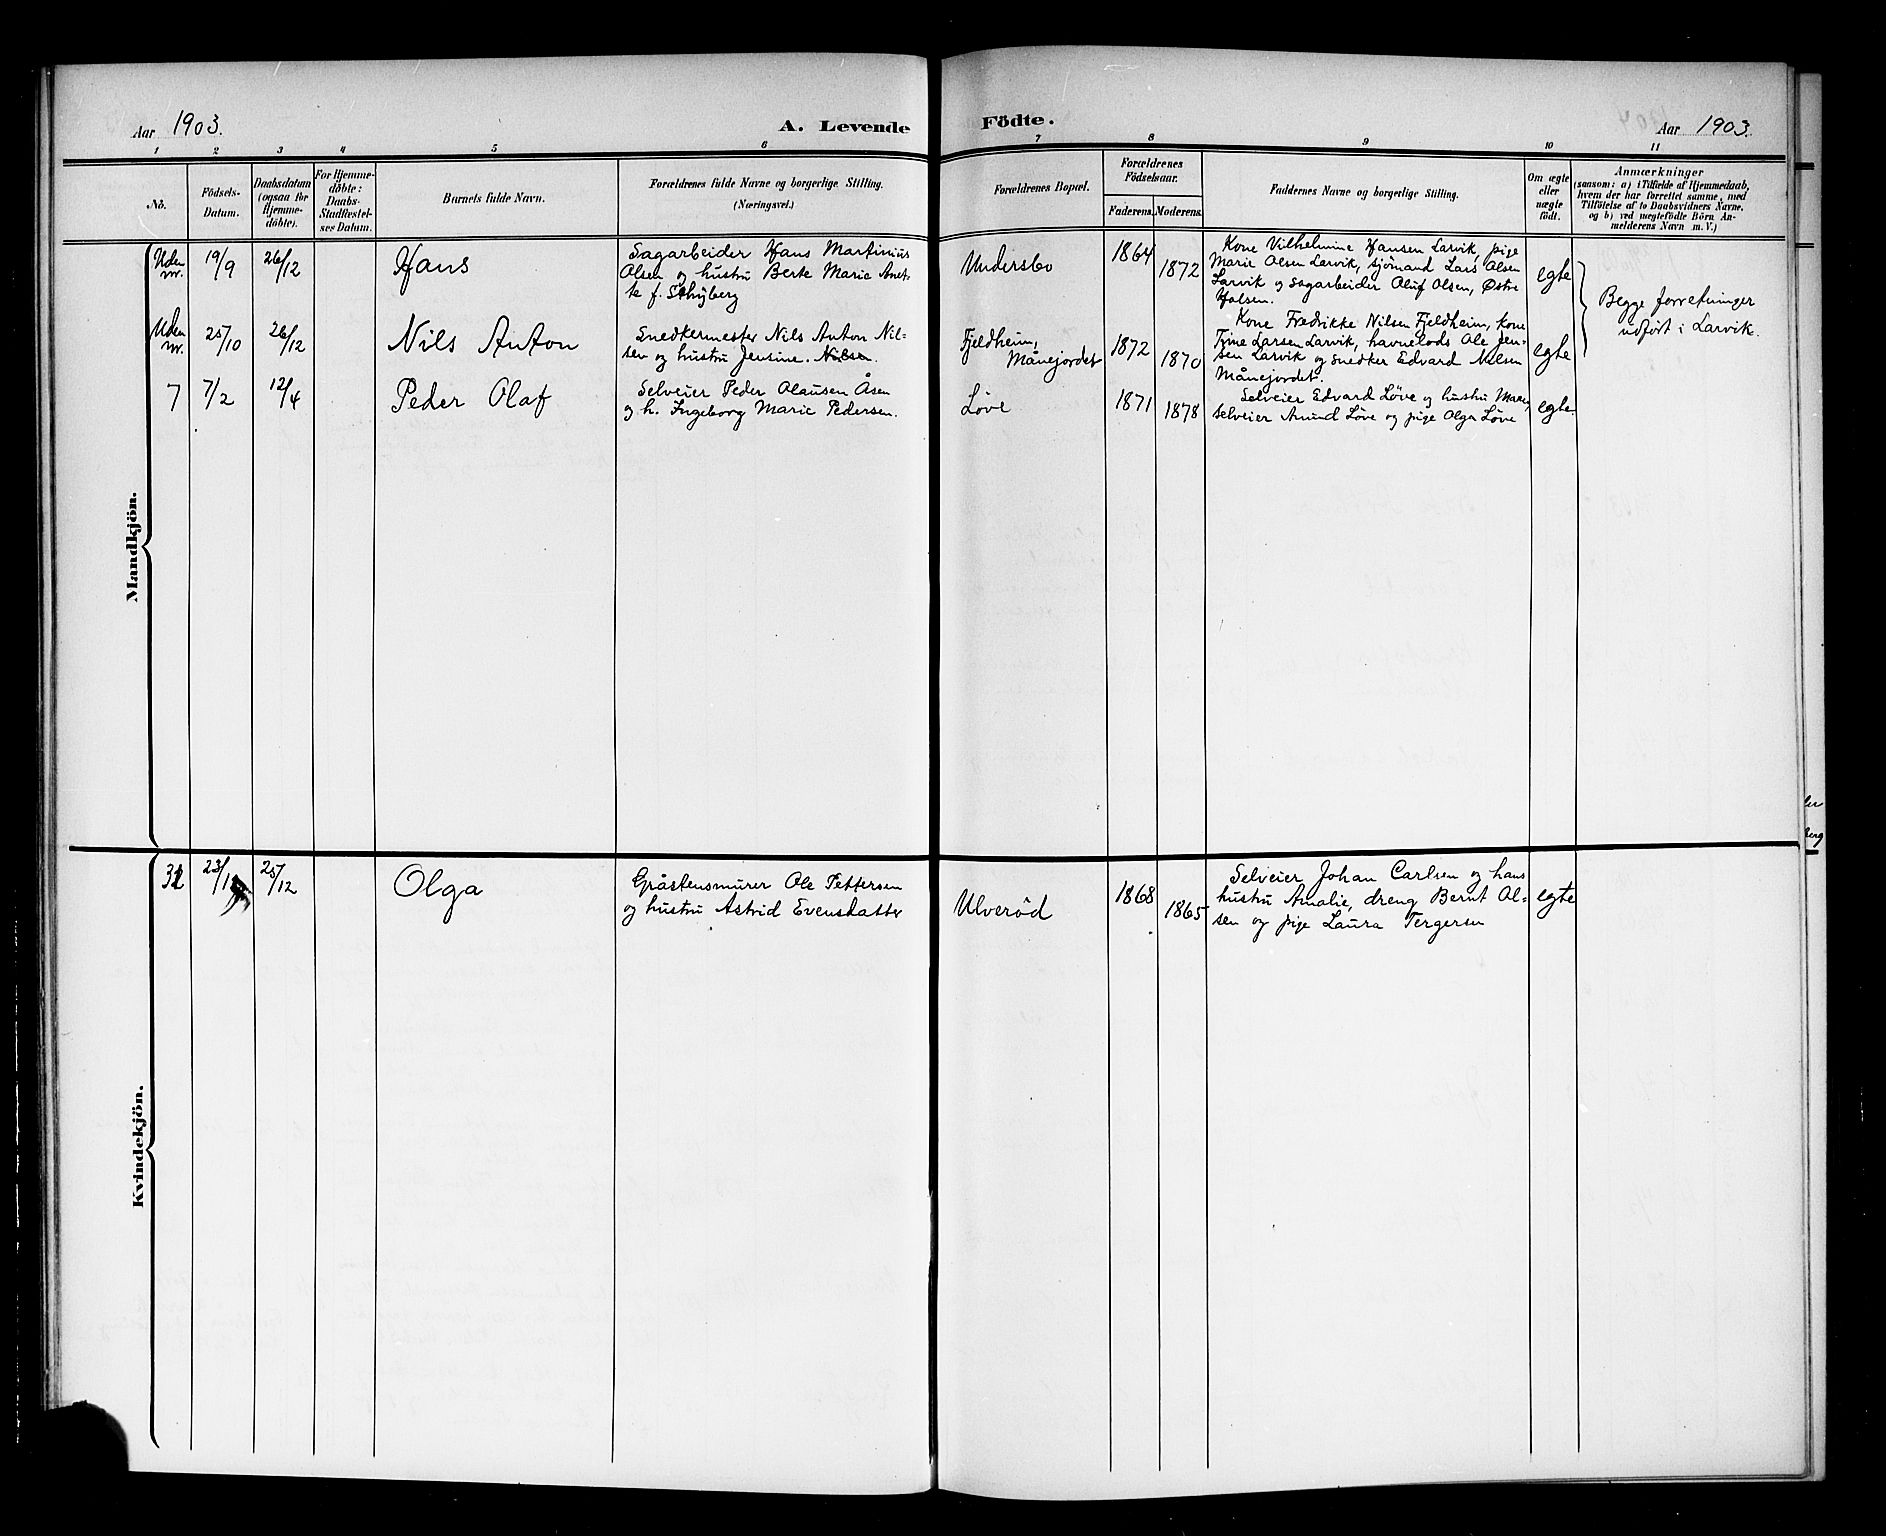 Aar 1903.
A. Levende Födte.
Aar 1903.
1 2 3 4 5 6 7 8 9 10 11
No.
Födsels-
Datum.
Daabsdatum
(ogsaa for
Hjemme-
döbte).
For Hjemme-
döbte:
Daabs-
Stadfæstel-
ses Datum.
Barnets fulde Navn.
Forældrenes fulde Navne og borgerlige Stilling.
(Næringsvei.)
Forældrenes Bopæl.
Forældrenes
Födselsaar.
Faderens. Moderens.
Faddernes Navne og borgerlige Stilling.
Om ægte
eller
uægte
födt.
Anmærkninger
(saasom: a) i Tilfælde af Hjemmedaab,
hvem der har forrettet samme, med
Tilföielse af to Daabsvidners Navne,
og b) ved uegtefödte Börn An-
melderens Navn m. V.)
Mandkjön.
Uden
nr.
19/9
26/12
Hans
Sagarbeider Hans Martinius
Olsen og hustru Berte Marie Anet-
te f. Styberg
Undersbo
1864
1872
Kone Vilhelmine Hansen Larvik, pige
Marie Olsen Larvik, sjömand Lars Olsen
Larvik og sagarbeider Oluf Olsen, Østre
Halsen.
egte
Begge forretninger
udført i Larvik.
Uden
nr.
25/10
26/12
Nils Anton
Snedkermester Nils Anton Nil-
sen og hustru Jensine. Nilsen.
Fjeldheim,
Månejordet
1872
1870
Kone Fredrikke Nilsen Fjeldheim, kone
Tine Larsen Larvik, havnelods Ole Jen-
sen Larvik og snedker Edvard Nilsen
Månejordet.
egte
7
7/2
12/4
Peder Olaf
Selveier Peder Olausen Åsen
og h. Ingeborg Marie Pedersen.
Løve
1871
1878
Selveier Edvard Løve og hustru Maren,
selveier Amund Løve og pige Olga Løve
egte
Kvindekjön.
32
23/1
25/12
Olga
Gråstensmurer Ole Pettersen
og hustru Astrid Evensdatter
Ulverød
1868
1865
Selveier Johan Carlsen og hans
hustru Amalie, dreng Bernt Ol=
sen og pige Laura Tergersen
egte